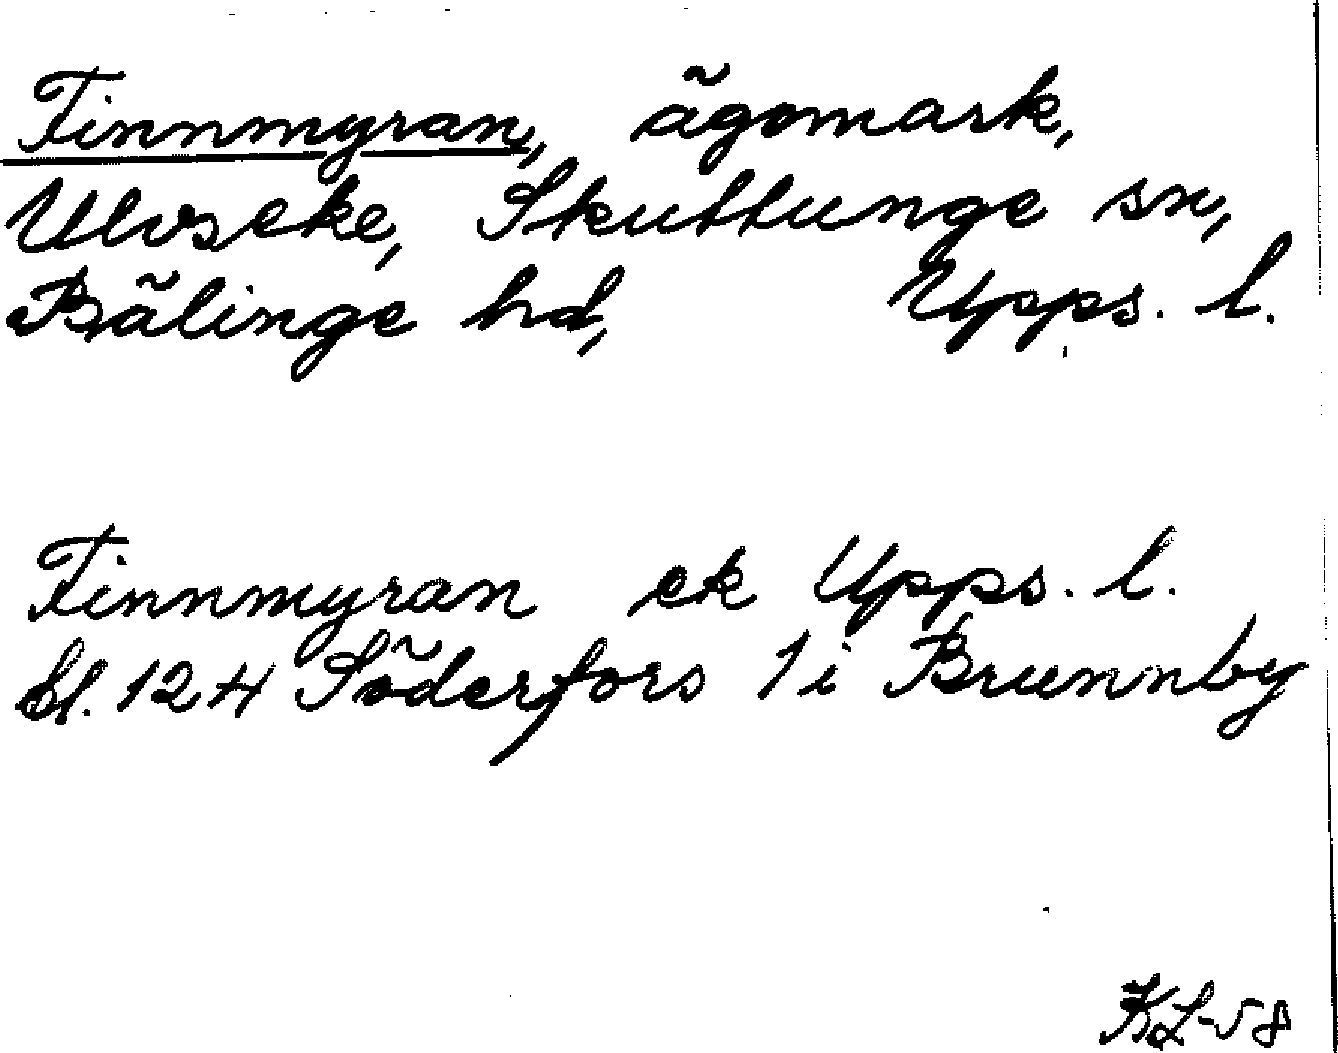 Finnmyran, ägomark,
Ulvseke, Skuttunge sn,
Bälinge hd, Upps. l.
Finnmyran ek Upps. l.
bl. 124 Söderfors 1 i Brunnby
KL-58